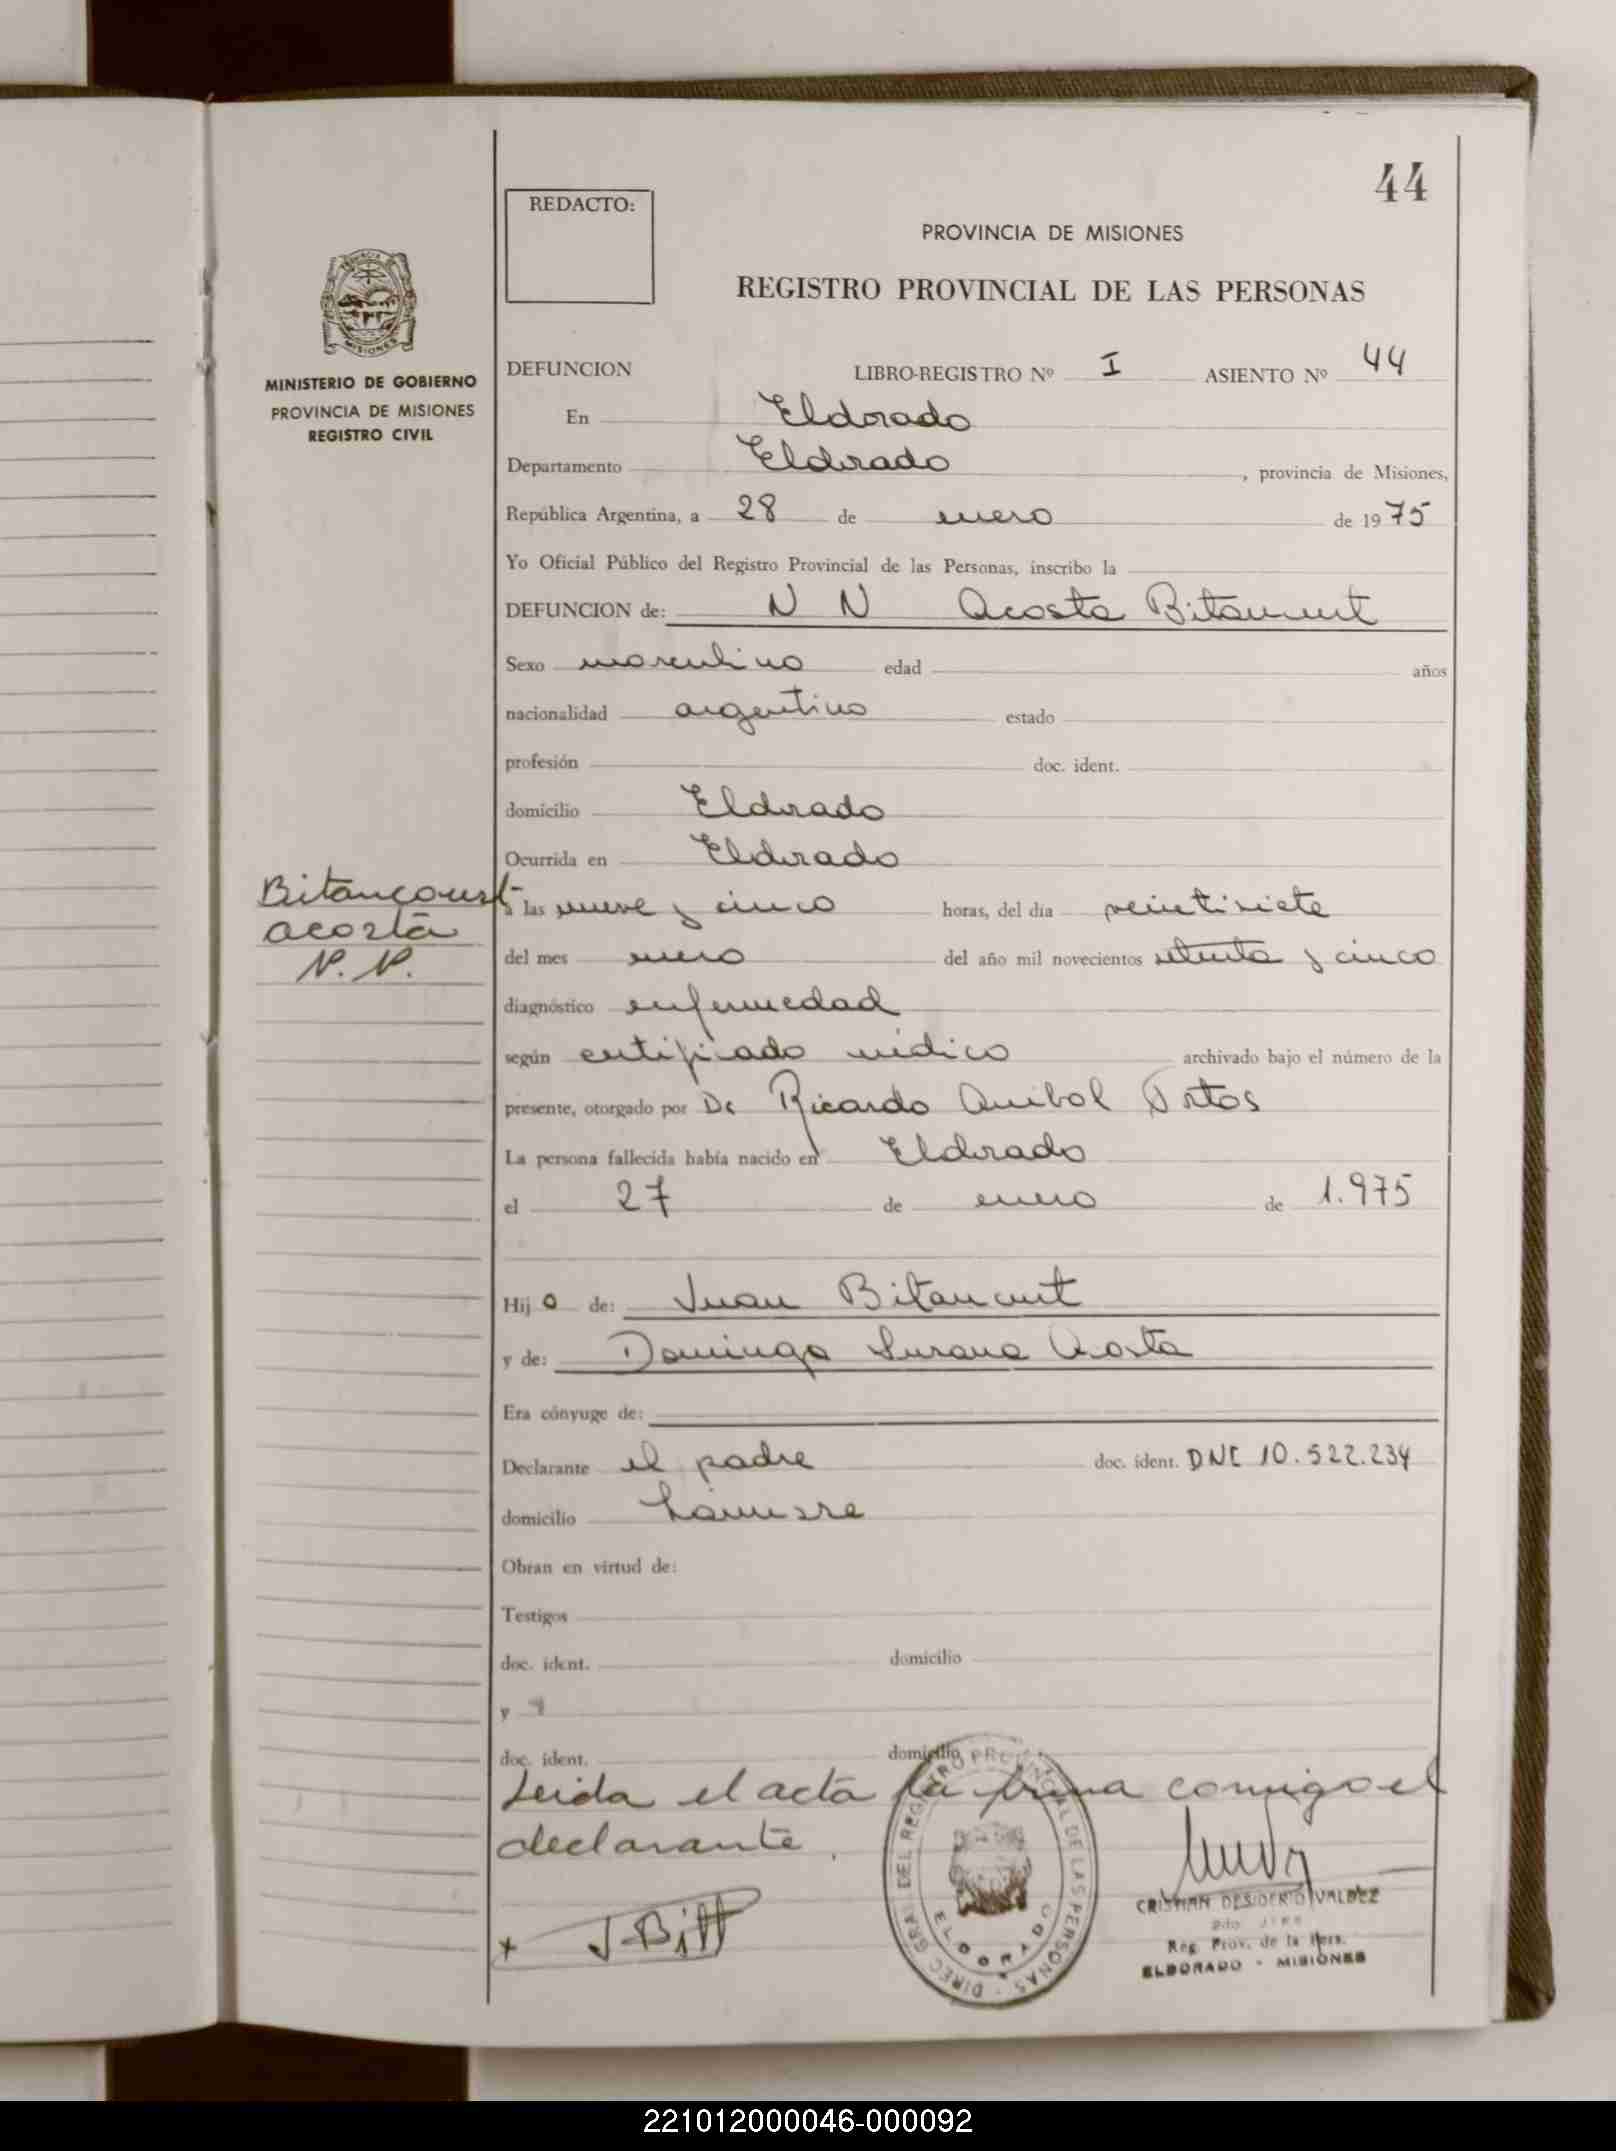 44
REDACTO:
PROVINCIA DE MISIONES
REGISTRO PROVINCIAL DE LAS PERSONAS
MINISTERIO DE GOBIERNO
PROVINCIA DE MISIONES
REGISTRO CIVIL
DEFUNCION LIBRO-REGISTRO Nº I ASIENTO Nº 44
En Eldorado
Departamento Eldorado, provincia de Misiones,
República Argentina, a 28 de enero de 1975
Yo Oficial Público del Registro Provincial de las Personas, inscribo la
DEFUNCION de: N N Acosta Bitancurt
Sexo masculino edad años
nacionalidad argentino estado
profesión doc. ident.
domicilio Eldorado
Ocurrida en Eldorado
Bitancourt
acosta
N.N.
a las nueve y cinco horas, del día veintisiete
del mes enero del año mil novecientos setenta y cinco
diagnóstico enfermedad
según certificado médico archivado bajo el número de la
presente, otorgado por Dr Ricardo Anibal Ortos
La persona fallecida había nacido en Eldorado
el 27 de enero de 1.975
Hijo de: Juan Bitancurt
y de: Dominga Susana Acosta
Era cónyuge de:
Declarante el padre doc. ident. DNI 10.522.234
domicilio
Obran en virtud de:
Testigos
doc. ident. domicilio
y
doc. ident. domicilio
Leida el acta la firma comigo el
declarante.
DIREC. GRAL DEL REGISTRO PROVINCIAL DE LAS PERSONAS
ELDORADO
J Bitt
CRISTIAN DESIDERIO VALDEZ
Reg. Prov. de la Pers.
ELDORADO - MISIONES
221012000046-000092